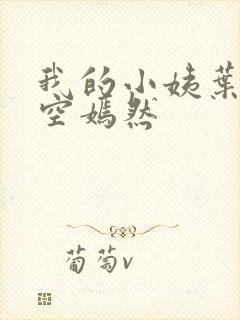 我的小姨葉
空嫣然
葡萄v